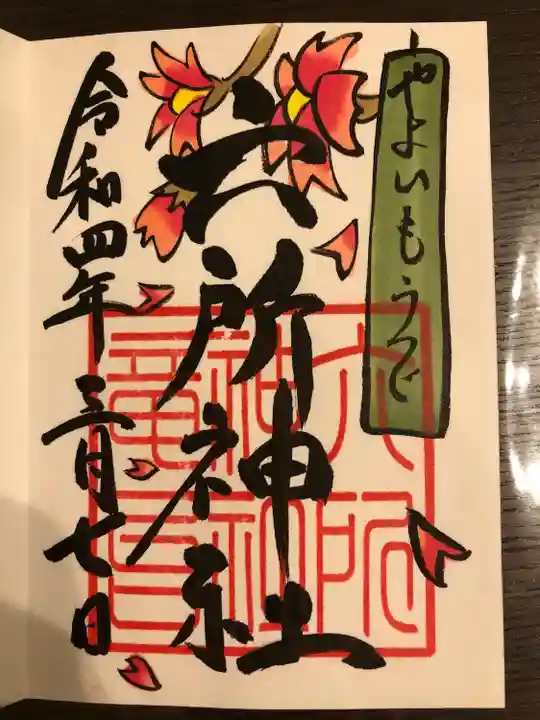 やよいもうで
六所神社
令和四年 三月七日